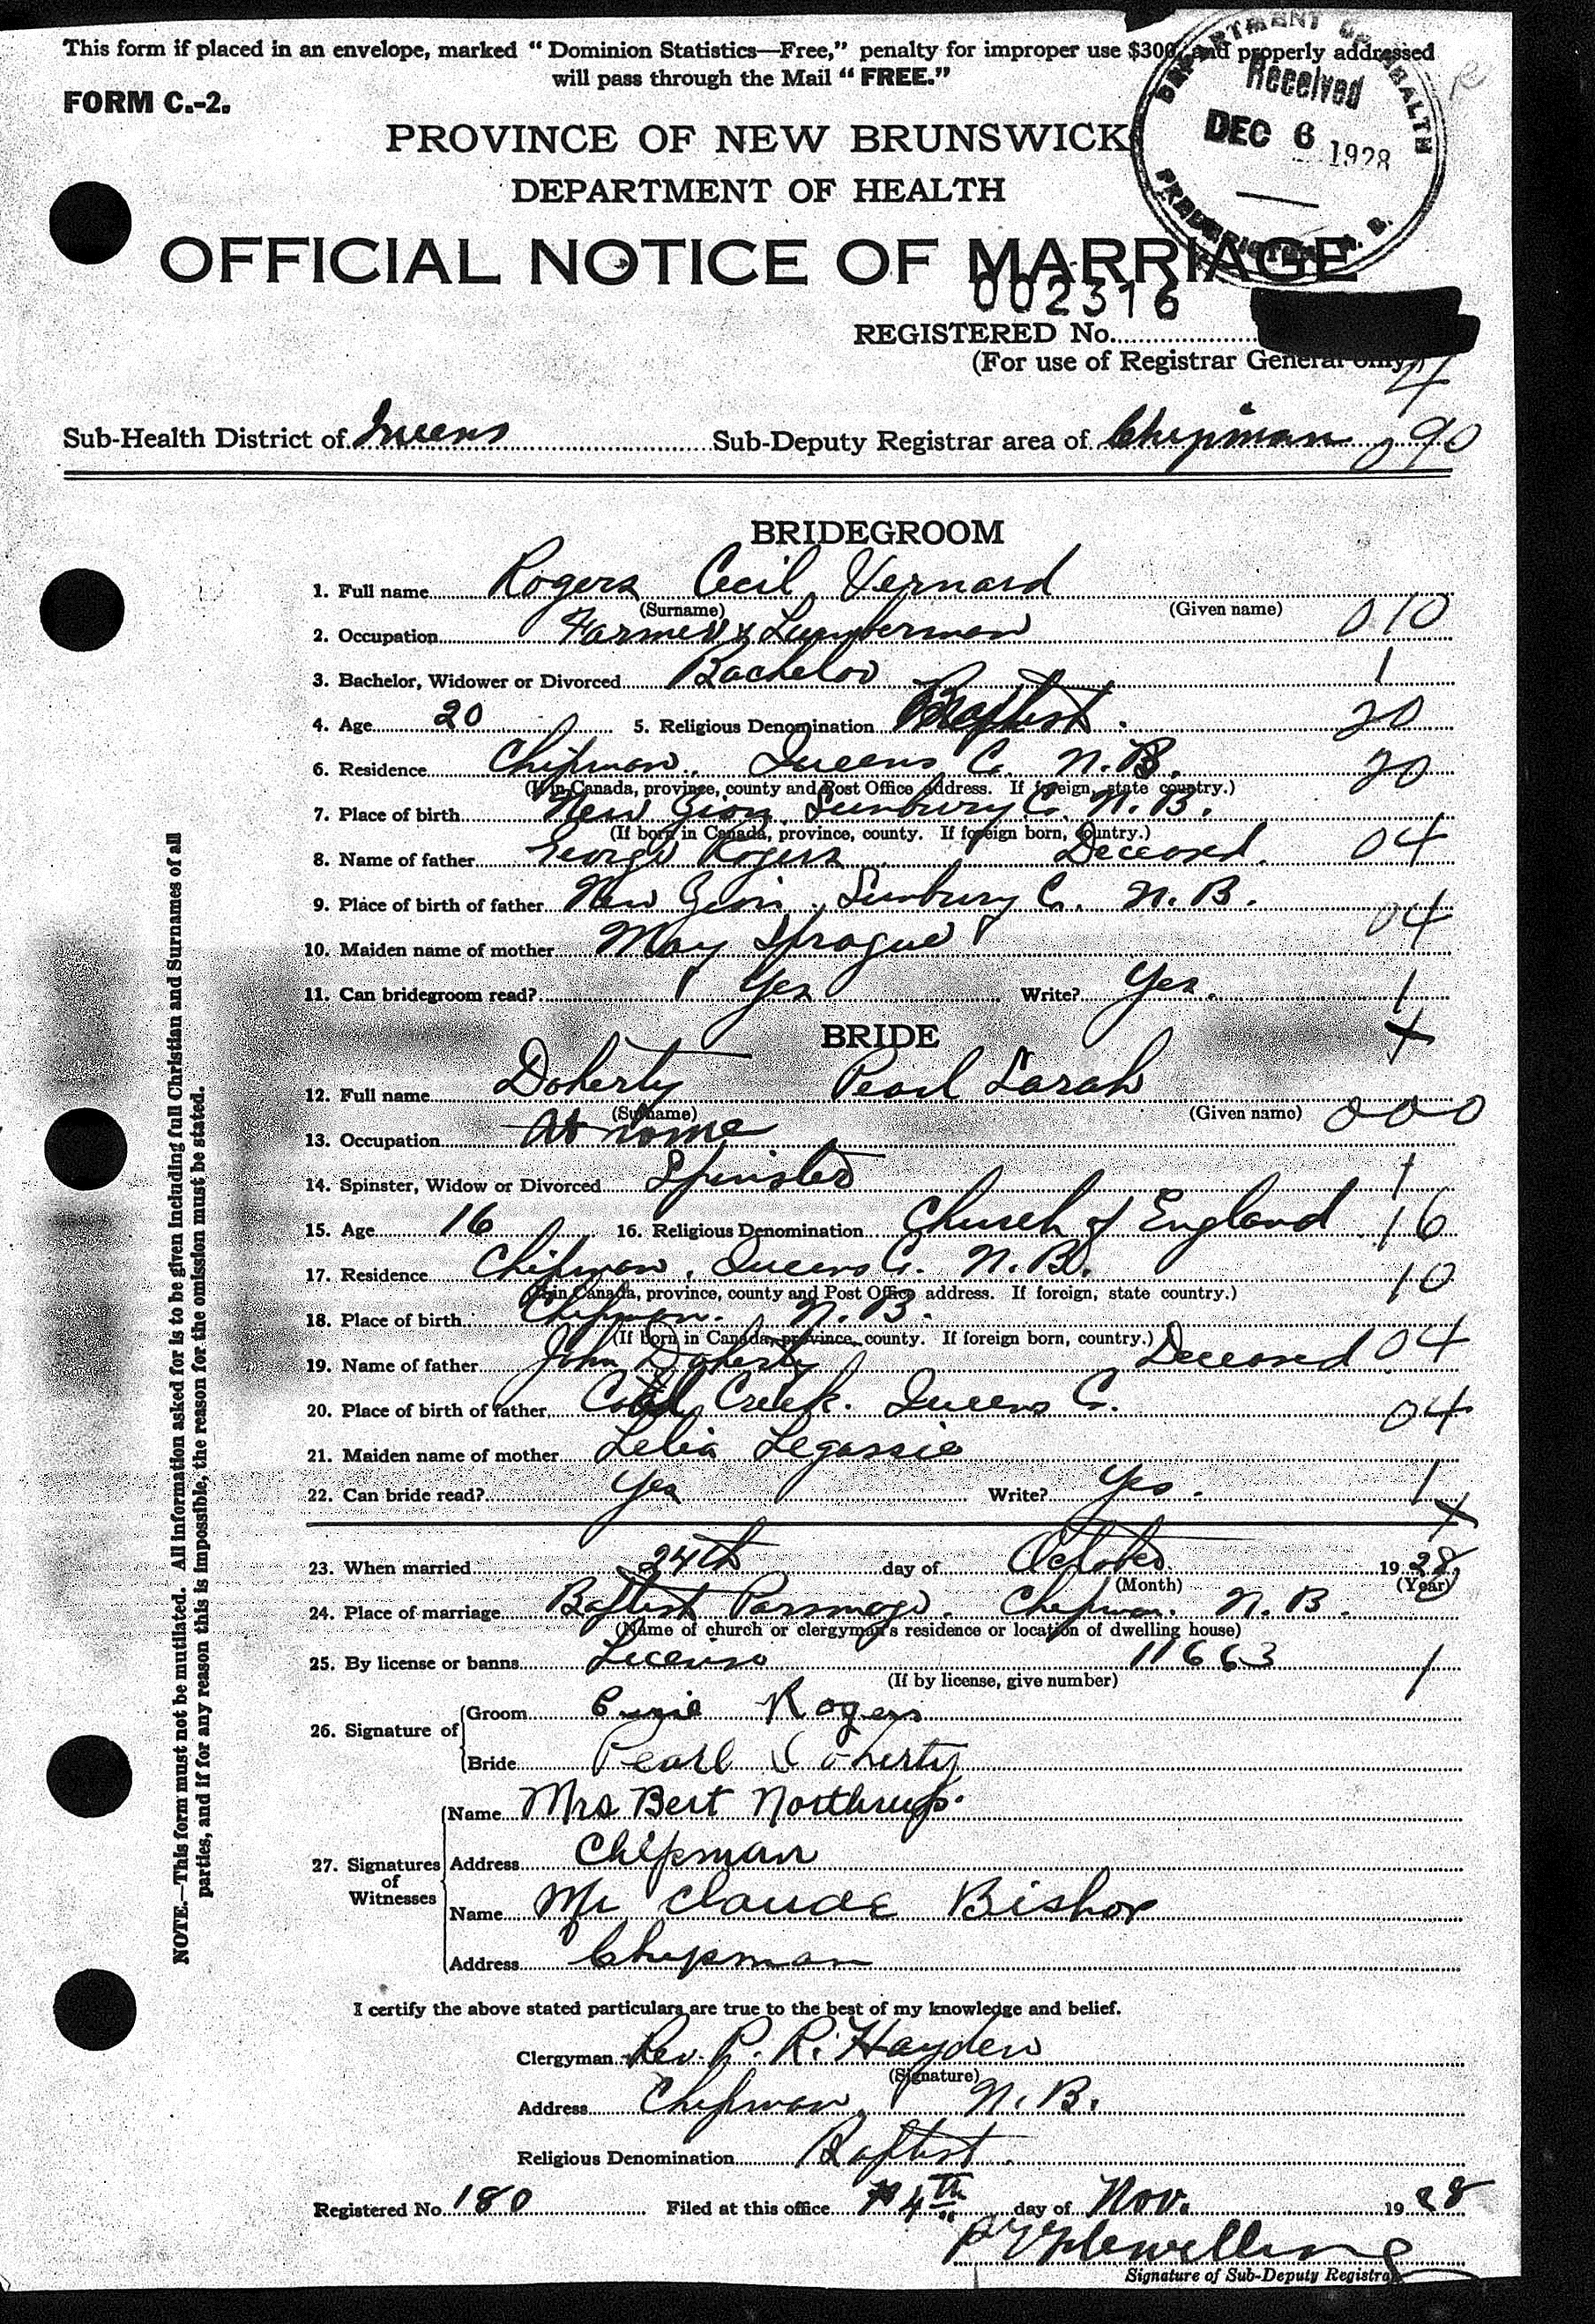 This form if placed in an envelope, marked “ Dominion Statistics—Free,” penalty for improper use $300, and properly addressed
will pass through the Mail “ FREE.”
FORM C.-2.
DEPARTMENT OF HEALTH
Received
DEC 6 1928
FREDERICTON, N. B.
PROVINCE OF NEW BRUNSWICK
DEPARTMENT OF HEALTH
OFFICIAL NOTICE OF MARRIAGE
002316
REGISTERED No.
(For use of Registrar General only.)
4
Sub-Health District of Queens Sub-Deputy Registrar area of Chipman 90
BRIDEGROOM
1. Full name Rogers Cecil Vernard
(Surname) (Given name)
2. Occupation Farmer & Lumberman 010
3. Bachelor, Widower or Divorced Bachelor 1
4. Age 20 5. Religious Denomination Baptist. 20
6. Residence Chipman, Queens Co. N.B. 20
(If in Canada, province, county and Post Office address. If foreign, state country.)
7. Place of birth New Zion, Sunbury Co. N.B.
(If born in Canada, province, county. If foreign born, country.)
8. Name of father George Rogers Deceased. 04
9. Place of birth of father New Zion, Sunbury Co. N.B.
10. Maiden name of mother May Sprague 04
11. Can bridegroom read? Yes Write? Yes. 1
BRIDE
12. Full name Doherty Pearl Sarah
(Surname) (Given name) 000
13. Occupation At home
14. Spinster, Widow or Divorced Spinster 1
15. Age 16 16. Religious Denomination Church of England 16
17. Residence Chipman, Queens Co. N.B. 10
(If in Canada, province, county and Post Office address. If foreign, state country.)
18. Place of birth Chipman. N.B.
(If born in Canada, province, county. If foreign born, country.)
19. Name of father John Doherty Deceased 04
20. Place of birth of father Coal Creek. Queens Co. 04
21. Maiden name of mother Lelia Legassie
22. Can bride read? Yes Write? Yes. 1
23. When married 24th day of October 1928
(Month) (Year)
24. Place of marriage Baptist Parsonage. Chipman. N.B.
(Name of church or clergyman's residence or location of dwelling house)
25. By license or banns License 11663 1
(If by license, give number)
26. Signature of Groom Rogers
Bride Pearl Doherty
27. Signatures of Witnesses
Name Mrs Bert Northrup.
Address Chipman
Name Mr Claude Bishop
Address Chipman
I certify the above stated particulars are true to the best of my knowledge and belief.
Clergyman Rev. P. R. Hayden
(Signature)
Address Chipman, N.B.
Religious Denomination Baptist.
Registered No. 180 Filed at this office 4th day of Nov. 1928
Flewelling
Signature of Sub-Deputy Registrar
NOTE.—This form must not be mutilated. All information asked for is to be given including full Christian and Surnames of all
parties, and if for any reason this is impossible, the reason for the omission must be stated.